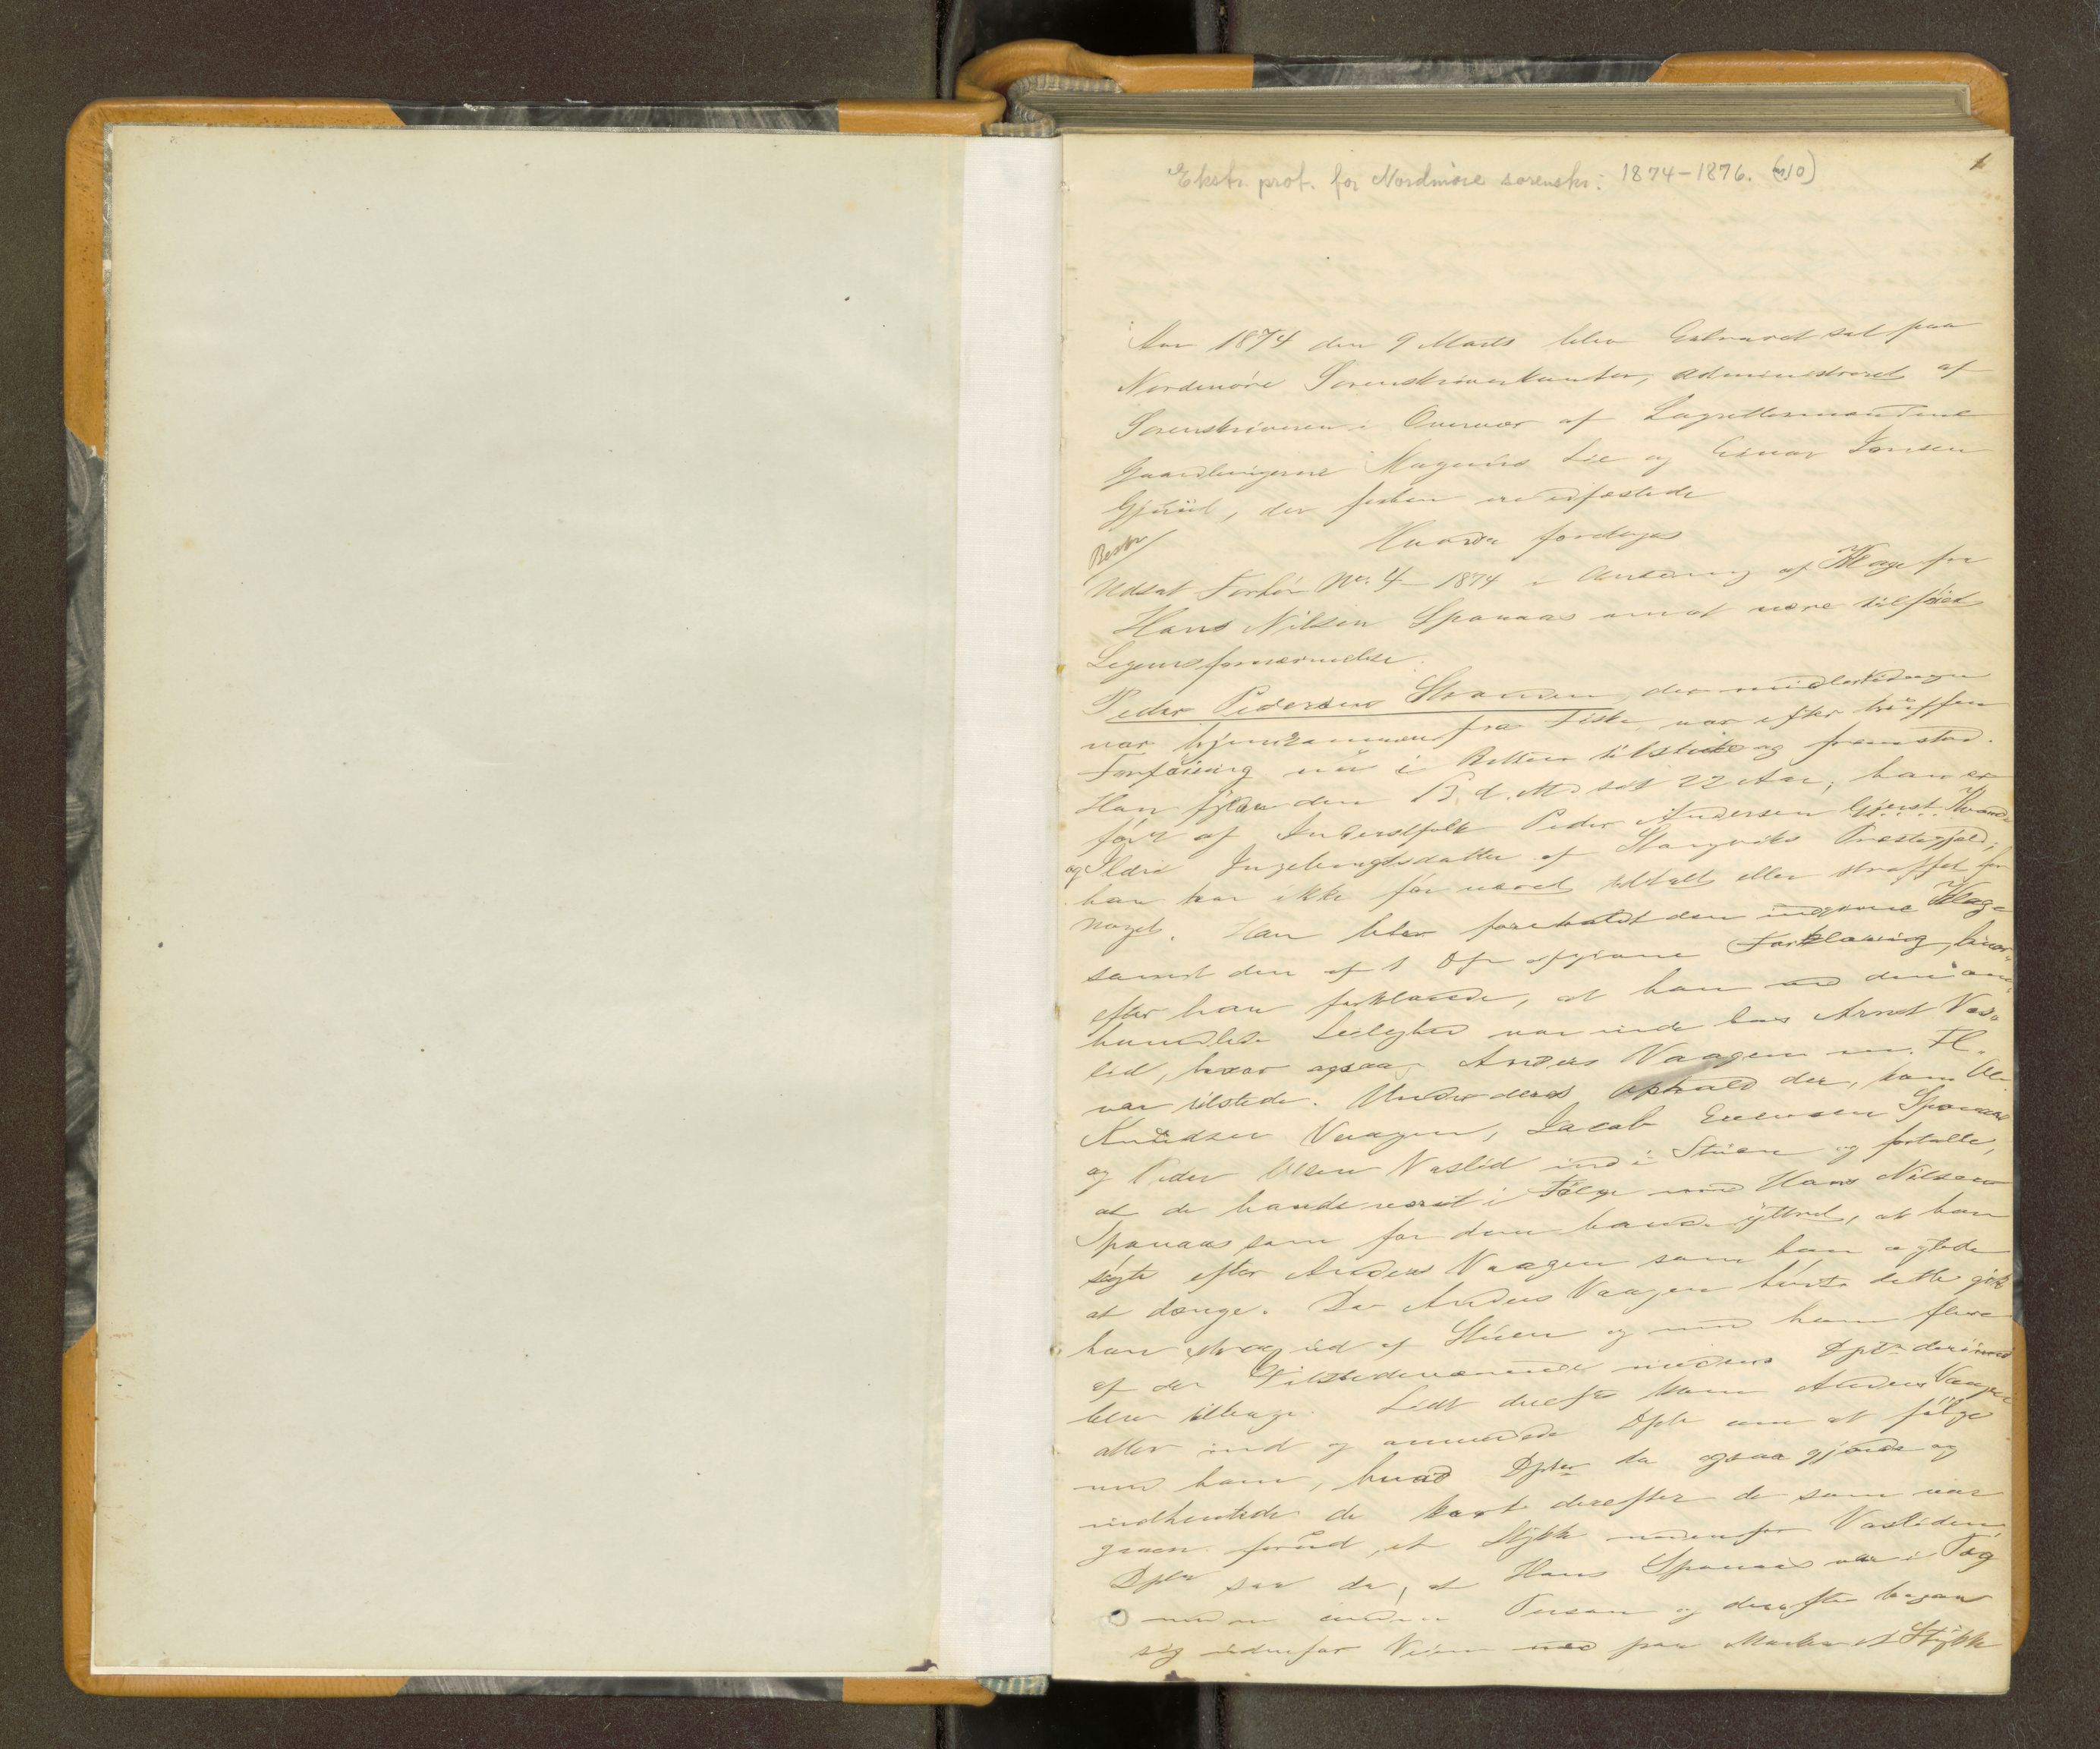 Ekstr. prot. for Nordmøre sorenskr. 1874-1876. (n 10)
1
Aar 1874 den 9 Marts blev Extraret sat paa
Nordmøre Sorenskriverkontor, administreret af
Sorenskriveren i Overvær af Lagrettesmændene
Gaardbrugerne Magnus Lie og Einar Jonsen
, der forhen ere edfæstede
Hvorda foretoges
Besr
Udsat Forhør No. 4 1874 i Anledning af Klage fra
Hans Nilsen Spanaas om at være tilføiet
Legemsfornærmelse.
Peder Pedersen Stromen, der midlertidigen
var hjemkommen fra Fiske var efter truffen
Forføining nu i Retten tilstede og fremstod.
Han fylder den 13 d. M. sit 22 Aar, han er
født af Inderstfolk Peder Andersen Kvande
og Ildri Ingebrigtsdatter af Stangviks Præstegjeld;
han har ikke før været tiltalt eller straffet for
noget. Han blev foreholdt den indgivne Klage
samt den af 1 Dpt afgivne Forklaring, hvor-
efter han forklarede, at han ved den om-
handlede Leilighed var inde hos Arnt Vas-
lid, hvor ogsaa Anders Vaagen m. Fl.
var tilstede. Under deres Ophold der, kom Ole
Knudsen Vaagen, Jacob Evensen Spanaas
og Peder Olsen Vaslid ind i Stuen og fortalte,
at de havde været i Følge med Hans Nilsen
Spanaas som for dem havde yttret, at han
søgte efter Anders Vaagen som han agtede
at dænge. Da Anders Vaagen hørte dette gik
han strax ud af Stuen og med ham flere
af de Tilstedeværende medens Dptn derimod
blev tilbage. Lidt derefter kom Anders Vaagen
atter ind og anmodede Dptn om at følge
med ham, hvad Dptn da ogsaa gjorde og
indhentede de kort derefter de som var
gaaen forud, et Stykke nedenfor Vasliden.
Dptn saa da, at Hans Spanaas var i Tag
med en anden Person og derefter begav
sig udenfor Veien ned paa Marken et Stykke